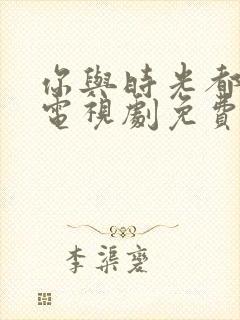 你與時光都
電視劇免費
李渠䶮